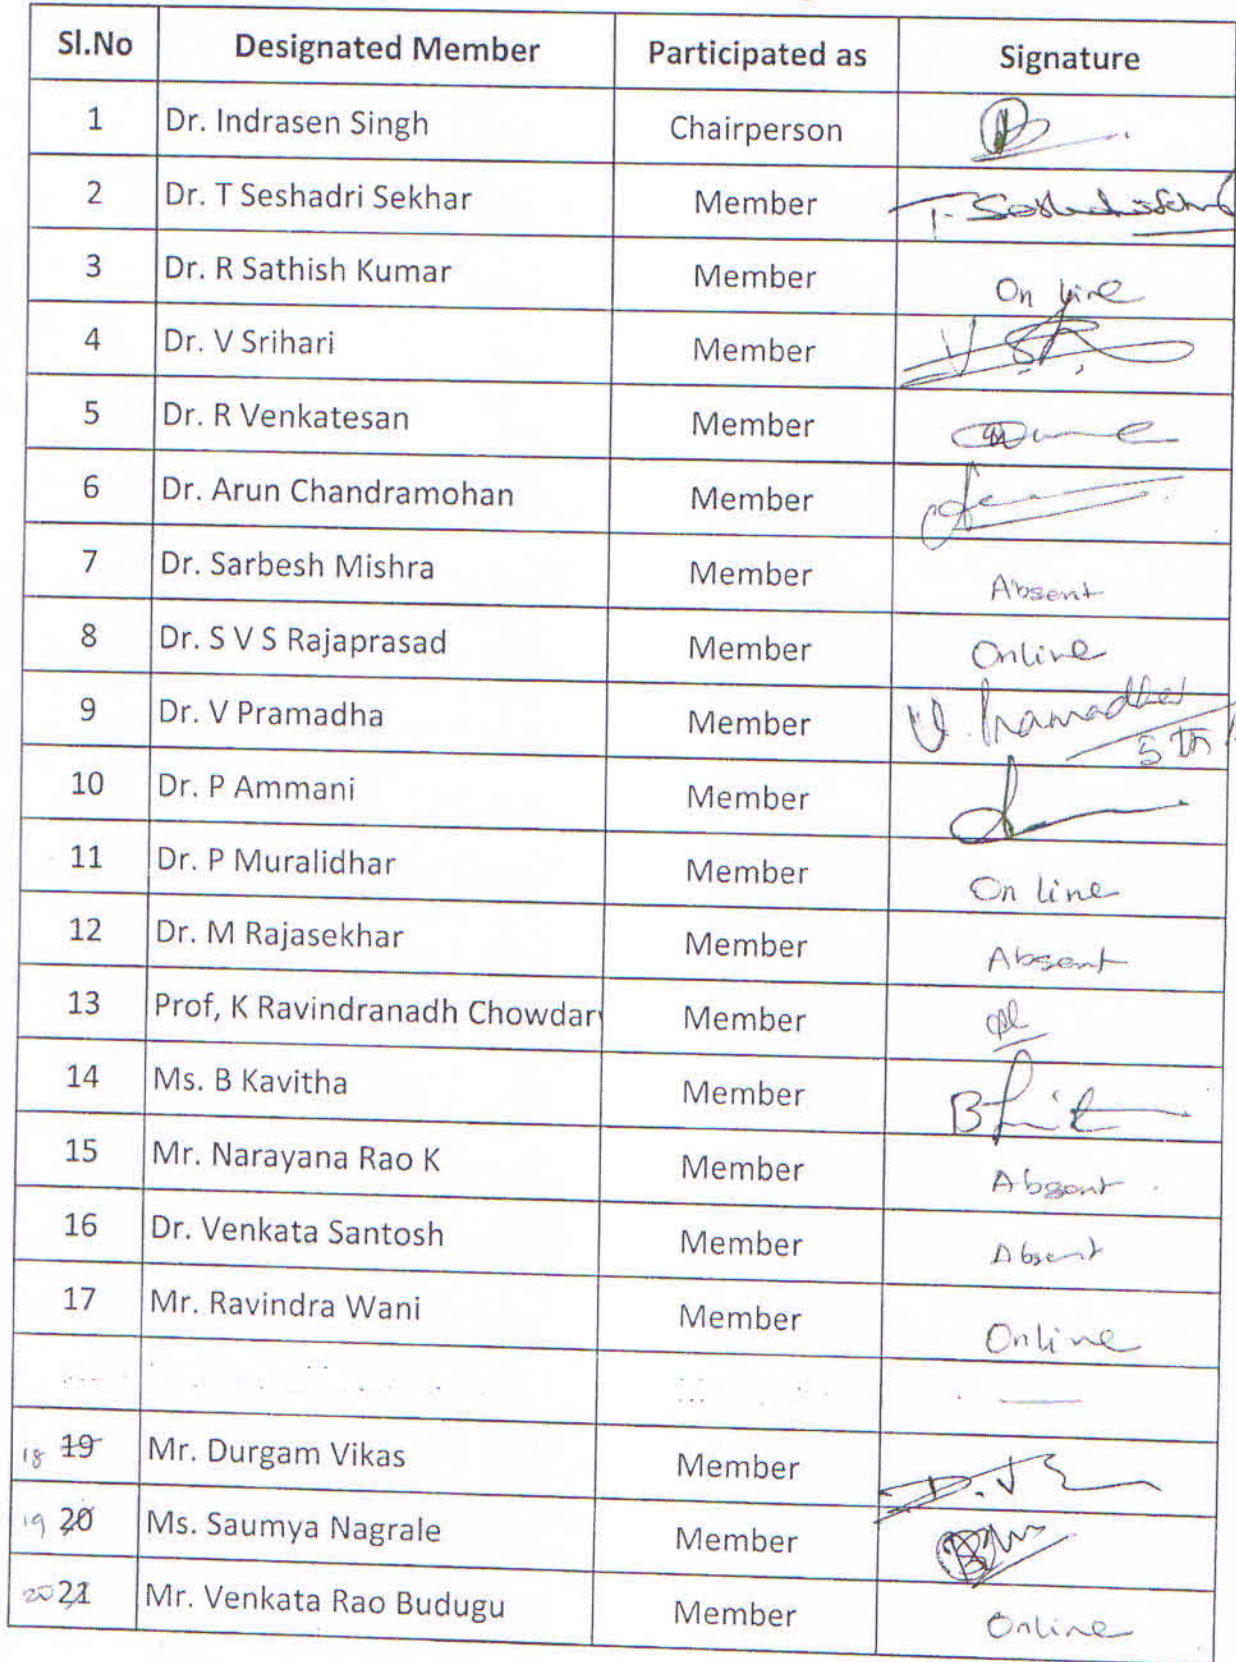 Sl.No Designated Member Participated as Signature
1 Dr. Indrasen Singh Chairperson
2 Dr. T Seshadri Sekhar Member T. Seshadri Sekhar
3 Dr. R Sathish Kumar Member On line
4 Dr. V Srihari Member
5 Dr. R Venkatesan Member
6 Dr. Arun Chandramohan Member
7 Dr. Sarbesh Mishra Member Absent
8 Dr. S V S Rajaprasad Member Online
9 Dr. V Pramadha Member V. Pramadha
5th
10 Dr. P Ammani Member
11 Dr. P Muralidhar Member On line
12 Dr. M Rajasekhar Member Absent
13 Prof, K Ravindranadh Chowdary Member
14 Ms. B Kavitha Member
15 Mr. Narayana Rao K Member Absent
16 Dr. Venkata Santosh Member Absent
17 Mr. Ravindra Wani Member Online
18 19 Mr. Durgam Vikas Member
19 20 Ms. Saumya Nagrale Member
20 21 Mr. Venkata Rao Budugu Member Online